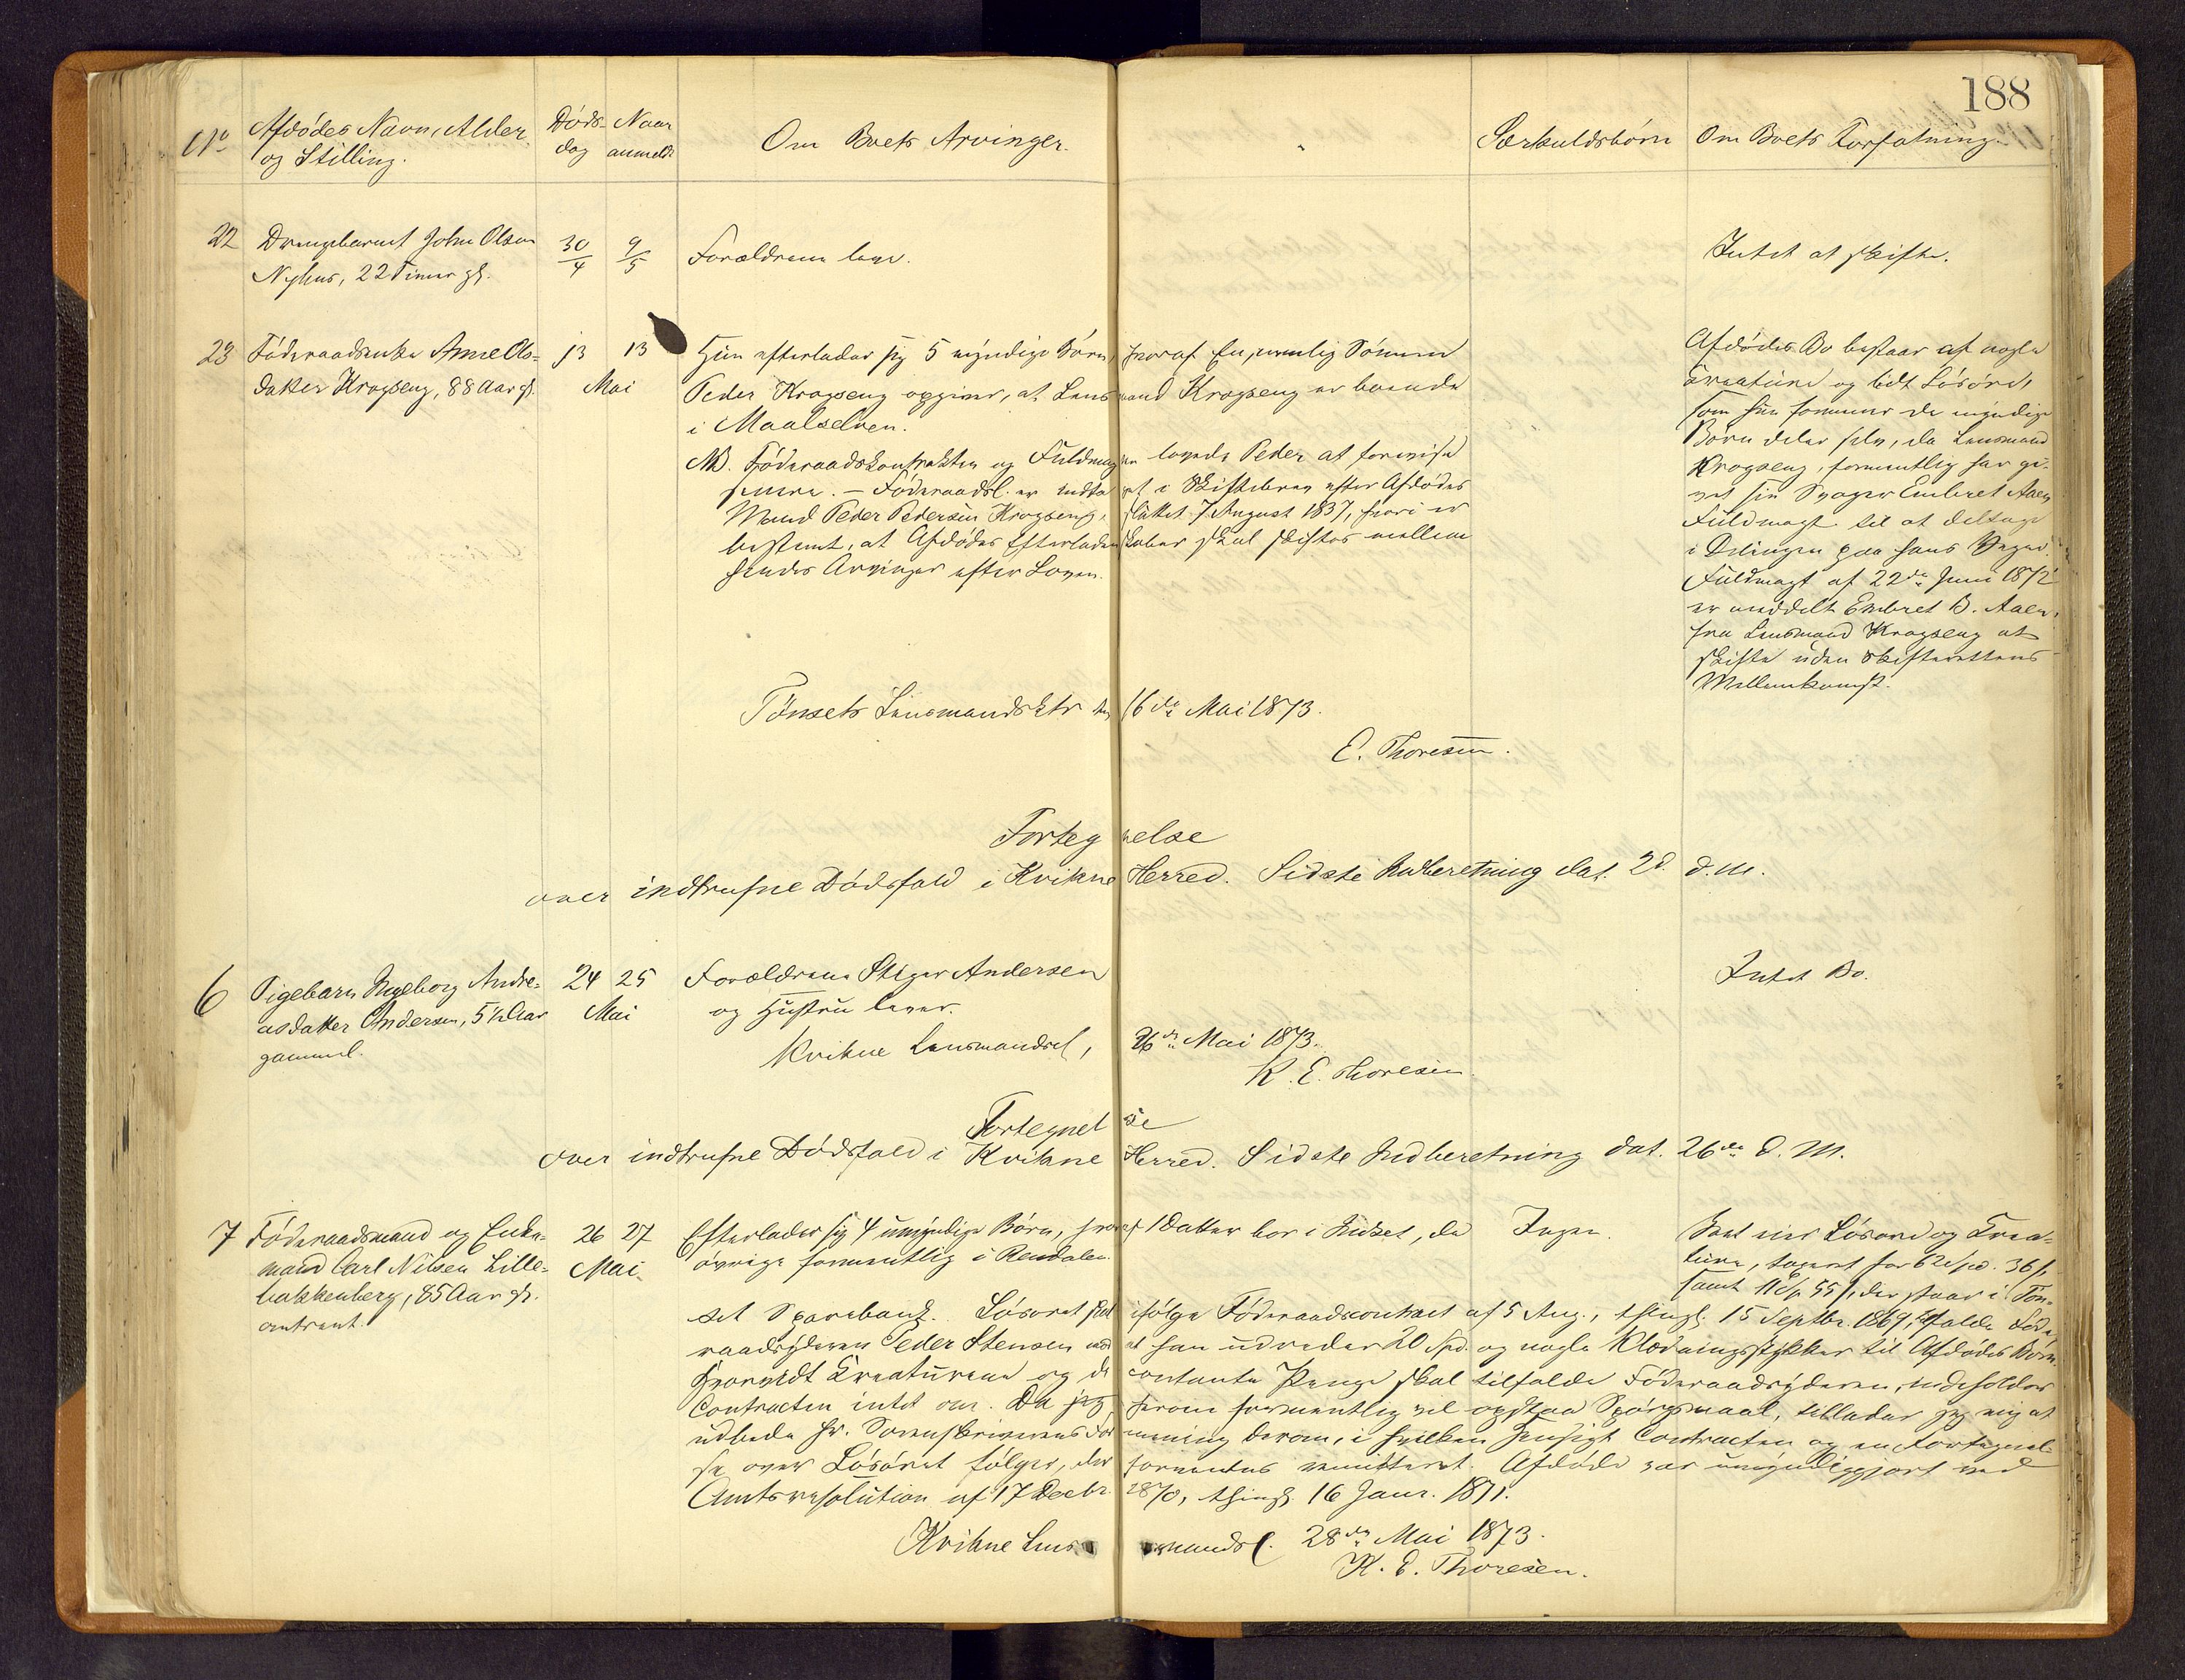 188
No Afdødes Navn, Alder og Stilling. Døds- dag Naar anmeldt Om Boets Arvinger. Særkuldsbørn Om Boets Forfatning.
22 Drengebarnet John Olsen
Nyhus, 22 Timer gl.
30/4 9/5 Forældrene leve.
Intet at skifte.
23 Føderaadsenke Anne Ols-
datter Krogseng, 88 Aar gl.
13 13
Mai
Hun efterlader sig 5 myndige Børn, hvoraf En, nemlig Sønnen
Peder Krogseng opgiver, at Lensmand Krogseng er boende
i Maalselven.
NB. Føderaadskontrakten og Fuldmagten lovede Peder at forevise
senere. – Føderaadsl. er indtaget i Skiftebrev efter Afdødes
Mand Peder Pedersen Krogseng, sluttet 7 August 1837, hvori er
bestemt, at Afdødes Efterladenskaber skal skiftes mellem
hendes Arvinger efter Loven.
Afdødes Bo bestaar af nogle
Creature og lidt Løsøre,
som hun sommer de myndige
Børn deler selv, da Lensmand
Krogseng, formentlig har gi-
vet sin Svoger Embret Aaen
Fuldmagt til at deltage
i Delingen paa hans Vegne.
Fuldmagt af 22de Juni 1872
er meddelt Embret B. Aaen,
fra Lensmand Krogseng at
skifte uden Skifterettens
Mellemkomst.
Tønsets Lensmandsktr den 16de Mai 1873.
E. Thoresen.
Fortegnelse
over indtrufne Dødsfald i Kvikne Herred. Sidste Indberetning dat. 2d. d.M.
6 Pigebarn Ingeborg Andre-
asdatter Andersen, 5½ Aar
gammel.
24 25
Mai
Forældrene Stiger Andersen
og Hustru lever.
Intet Bo.
Kvikne Lensmandsd, 26de Mai 1873.
K. E. Thoresen.
Fortegnelse
over indtrufne Dødsfald i Kvikne Herred. Sidste Indberetning dat. 26de d. M.
7 Føderaadsmand og Enke-
mand Carl Nilsen Lille-
bakkenberg, 85 Aar gl.
omtrent.
26 27
Mai
Efterlader sig 4 umyndige Børn, hvoraf 1 Datter bor i Indset, de
øvrige formentlig i Rendalen.
Ingen.
Løsøre og Crea-
ture, taxeret for 62 Spd. 36 ß,
samt 11 Sp. 55 ß, der staar i Tøn-
set Sparebank. Løsøret skal ifølge Føderaadscontract af 5 Aug., thingl. 15 Septbr. 1869, tilfalde Føde-
raadsyderen Peder Stensen mod at han udreder 20 Spd. og nogle Klædningsstykker til Afdødes Børn.
Hvorvidt Creaturene og de contante Penge skal tilfalde Føderaadsyderen, indeholder
Contracten intet om. Da jeg, herom formentlig vil opstaa Spørgsmaal, tillader jeg mig at
udbede Hr. Sorenskriverens Formening derom, i hvilken Hensigt Contracten og en Fortegnel-
se over Løsøret følger, der formentes remitteret. Afdøde var umyndiggjort ved
Amtsresolution af 17 Decbr. 1870, thingl. 16 Janr. 1871.
Kvikne Lensmandsd. 28de Mai 1873.
K. E. Thoresen.